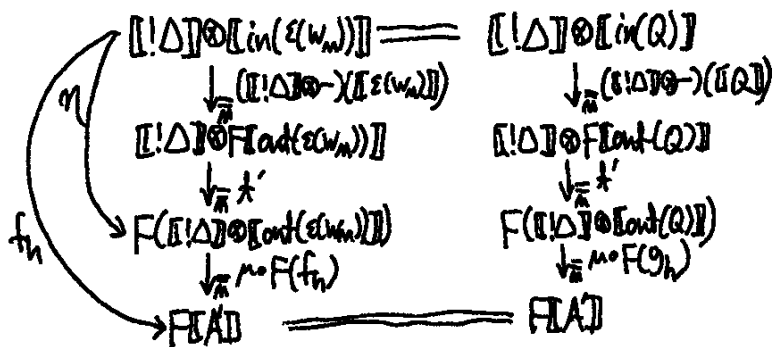 ⟦!Δ⟧⊗⟦in(ε(W_M))⟧ = ⟦!Δ⟧⊗⟦in(Q)⟧
η ↓_M̿ (⟦!Δ⟧⊗-)(⟦ε(W_M)⟧) ↓_M̿ (⟦!Δ⟧⊗-)(⟦Q⟧)
⟦!Δ⟧⊗F⟦out(ε(W_M))⟧ ⟦!Δ⟧⊗F⟦out(Q)⟧
↓_M̿ t' ↓_M̿ t'
f_h F(⟦!Δ⟧⊗⟦out(ε(W_M))⟧) F(⟦!Δ⟧⊗⟦out(Q)⟧)
↓_M̿ μ∘F(f_h) ↓_M̿ μ∘F(g_h)
F⟦A'⟧ = F⟦A'⟧